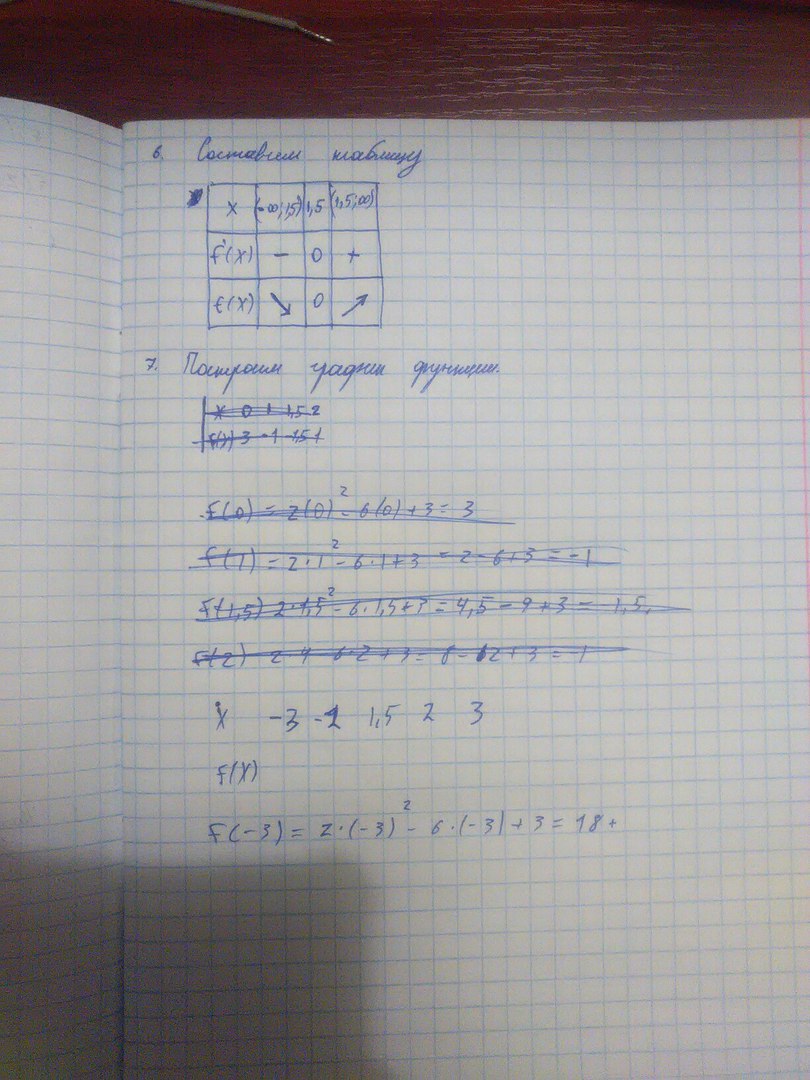 6. Составим таблицу
x (-∞; 1,5) 1,5 (1,5; ∞)
f'(x) − 0 +
f(x) ↘ 0 ↗
7. Построим график функции.
x 0 1 1,5 2
f(x) 3 -1 -1,5 -1
f(0) = 2(0)² - 6(0) + 3 = 3
f(1) = 2·1² - 6·1 + 3 = 2 - 6 + 3 = -1
f(1,5) 2·1,5² - 6·1,5 + 3 = 4,5 - 9 + 3 = -1,5.
f(2) 2·4 - 6·2 + 3 = 8 - 12 + 3 = -1
x -3 1,5 2 3
f(x)
f(-3) = 2·(-3)² - 6·(-3) + 3 = 18 +